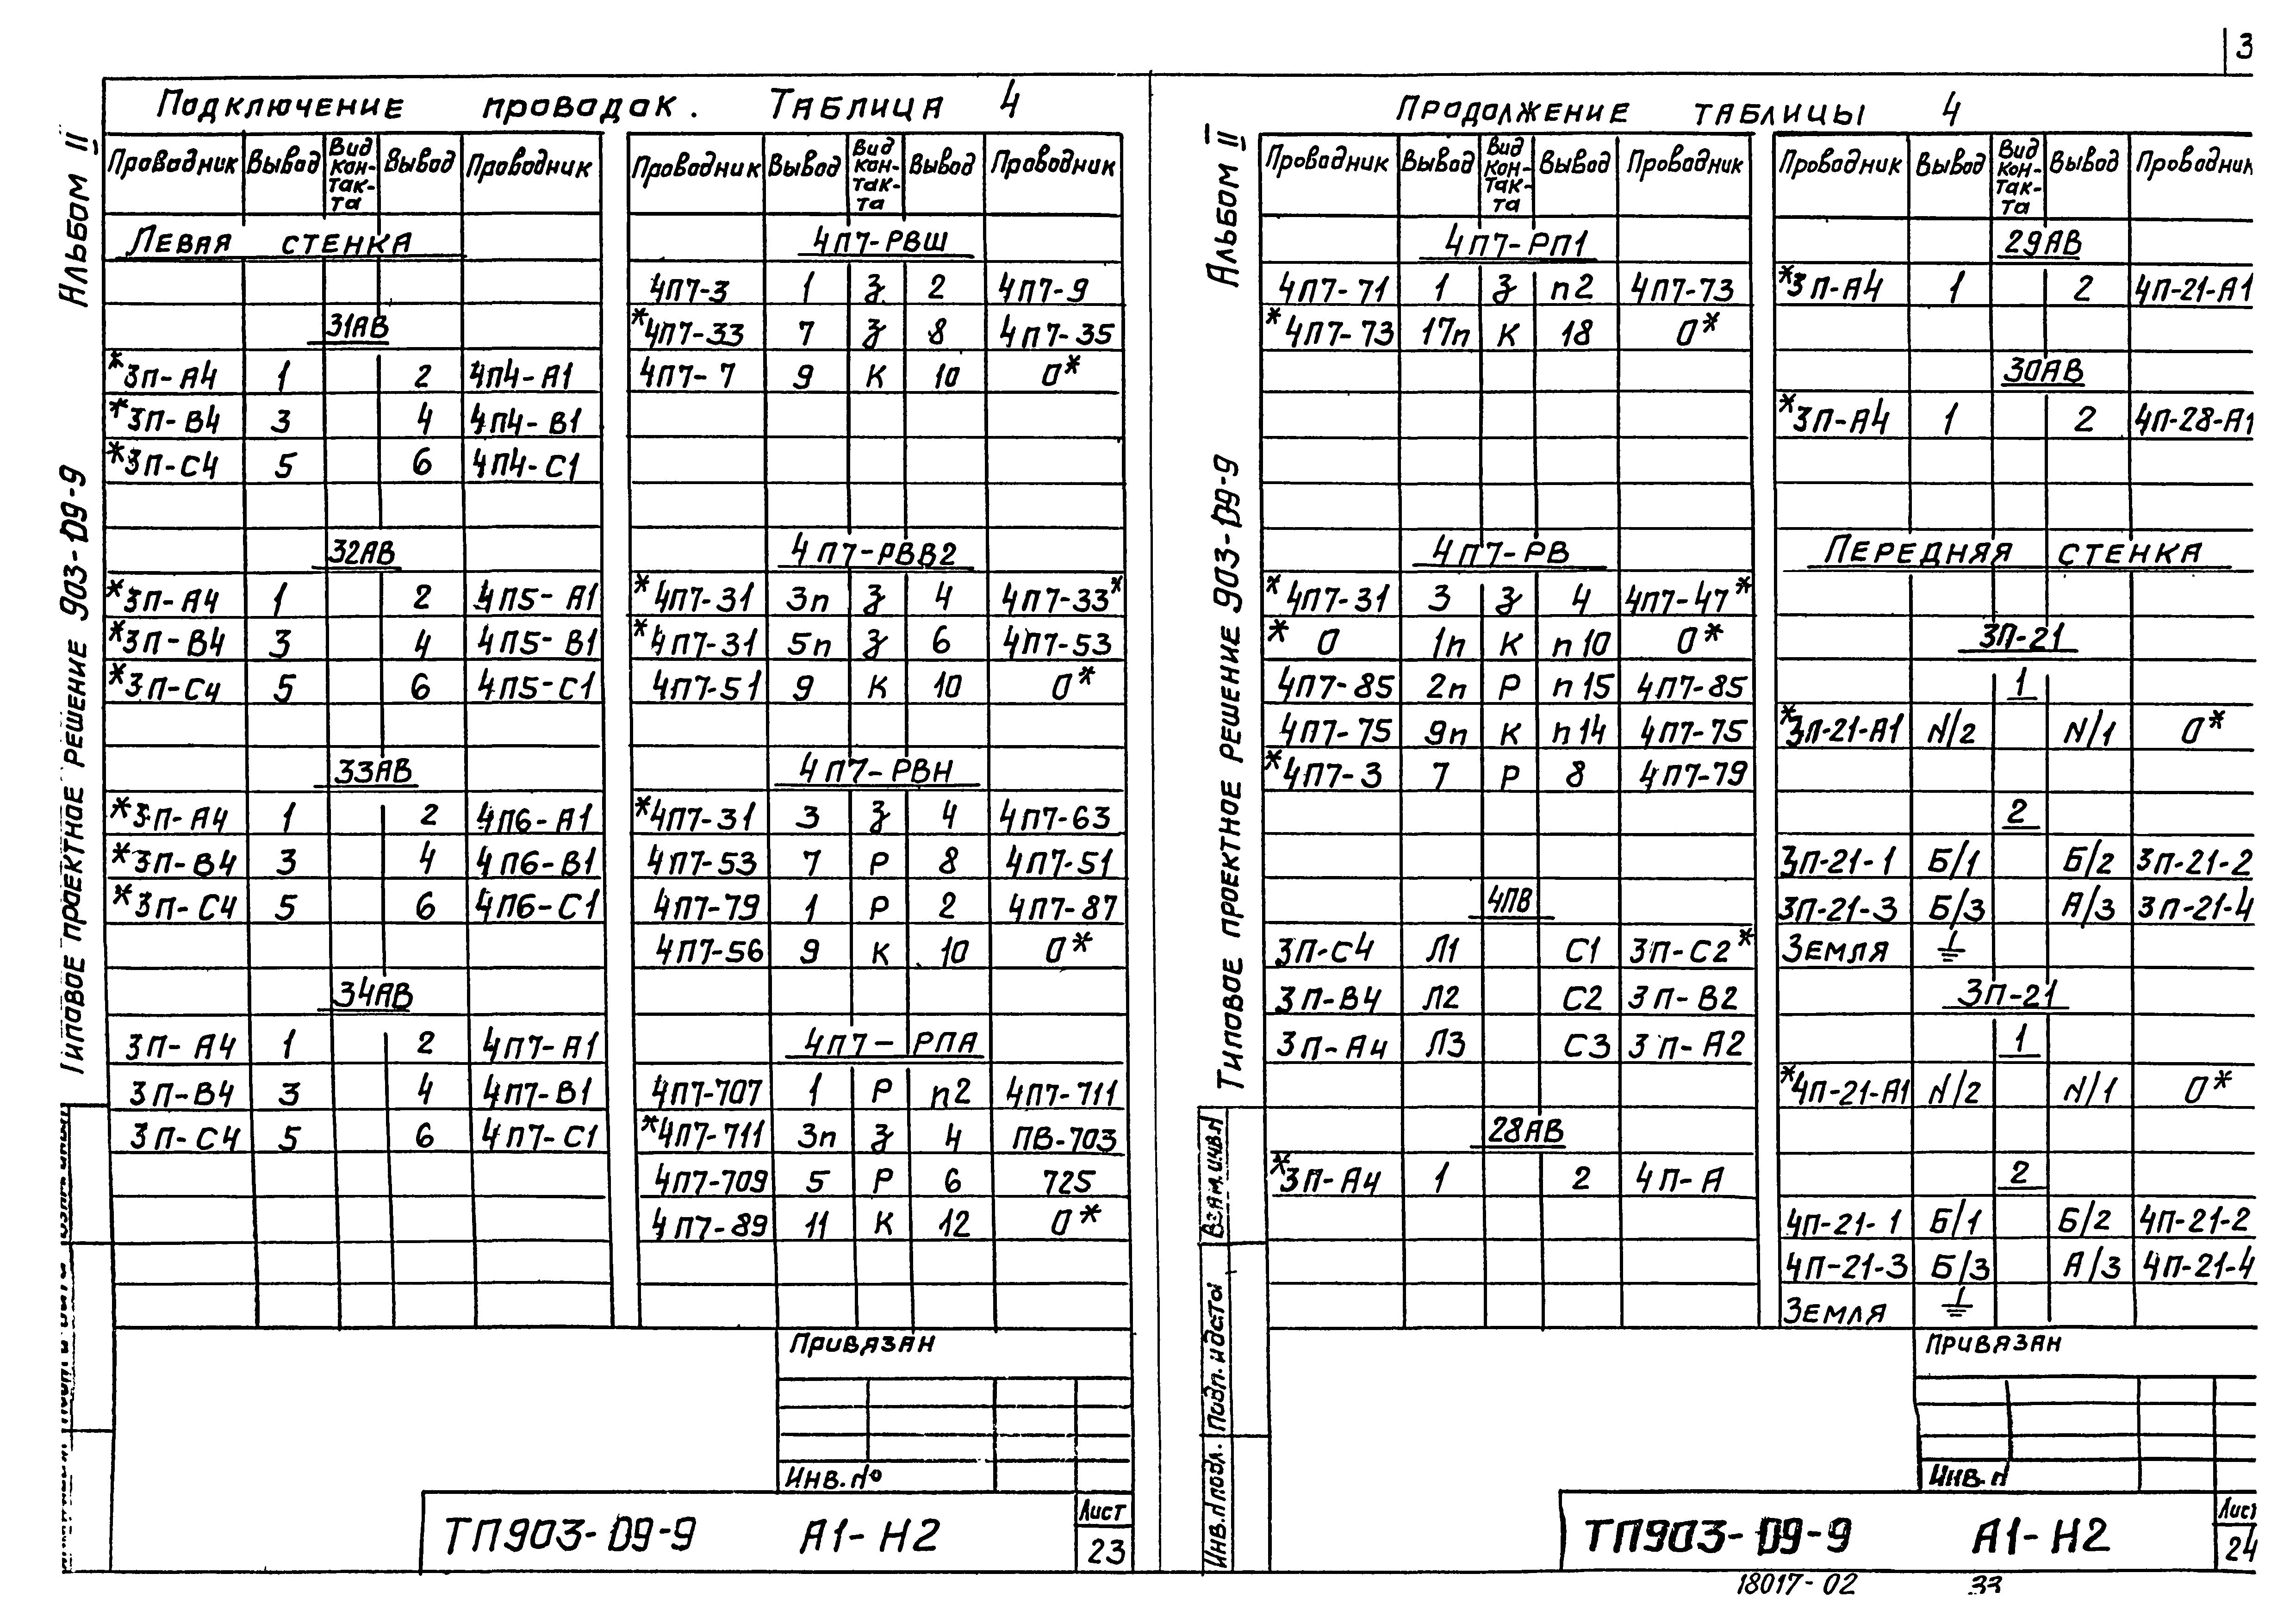 3
Подключение проводок. Таблица 4
Альбом II
Типовое проектное решение 903-D9-9
Проводник Вывод Вид кон-так-та Вывод Проводник
Левая стенка
31АВ
*3П-А4 1 2 4П4-А1
*3П-В4 3 4 4П4-В1
*3П-С4 5 6 4П4-С1
32АВ
*3П-А4 1 2 4П5-А1
*3П-В4 3 4 4П5-В1
*3П-С4 5 6 4П5-С1
33АВ
*3П-А4 1 2 4П6-А1
*3П-В4 3 4 4П6-В1
*3П-С4 5 6 4П6-С1
34АВ
3П-А4 1 2 4П7-А1
3П-В4 3 4 4П7-В1
3П-С4 5 6 4П7-С1
Проводник Вывод Вид кон-так-та Вывод Проводник
4П7-РВШ
4П7-3 1 З 2 4П7-9
*4П7-33 7 З 8 4П7-35
4П7-7 9 К 10 0*
4П7-РВВ2
*4П7-31 3п З 4 4П7-33*
*4П7-31 5п З 6 4П7-53
4П7-51 9 К 10 0*
4П7-РВН
*4П7-31 3 З 4 4П7-63
4П7-53 7 Р 8 4П7-51
4П7-79 1 Р 2 4П7-87
4П7-56 9 К 10 0*
4П7-РПА
4П7-707 1 Р п2 4П7-711
*4П7-711 3п З 4 ПВ-703
4П7-709 5 Р 6 725
4П7-89 11 К 12 0*
Привязан
Инв. №
ТП903-D9-9 А1-Н2
Лист
23
Продолжение таблицы 4
Альбом II
Типовое проектное решение 903-D9-9
Проводник Вывод Вид кон-так-та Вывод Проводник
4П7-РП1
4П7-71 1 З п2 4П7-73
*4П7-73 17п К 18 0*
4П7-РВ
*4П7-31 3 З 4 4П7-47*
*0 1п К п10 0*
4П7-85 2п Р п15 4П7-85
4П7-75 9п К п14 4П7-75
*4П7-3 7 Р 8 4П7-79
4ПВ
3П-С4 Л1 С1 3П-С2*
3П-В4 Л2 С2 3П-В2
3П-А4 Л3 С3 3П-А2
28АВ
*3П-А4 1 2 4П-А
Проводник Вывод Вид кон-так-та Вывод Проводник
29АВ
*3П-А4 1 2 4П-21-А1
30АВ
*3П-А4 1 2 4П-28-А1
Передняя стенка
3П-21
1
*3П-21-А1 N/2 N/1 0*
2
3П-21-1 Б/1 Б/2 3П-21-2
3П-21-3 Б/3 А/3 3П-21-4
Земля ⏚
3П-21
1
*4П-21-А1 N/2 N/1 0*
2
4П-21-1 Б/1 Б/2 4П-21-2
4П-21-3 Б/3 А/3 4П-21-4
Земля ⏚
Взам. инв. N
Подп. и дата
Инв. N подл.
Привязан
Инв. N
ТП903-D9-9 А1-Н2
Лист
24
18017-02 33